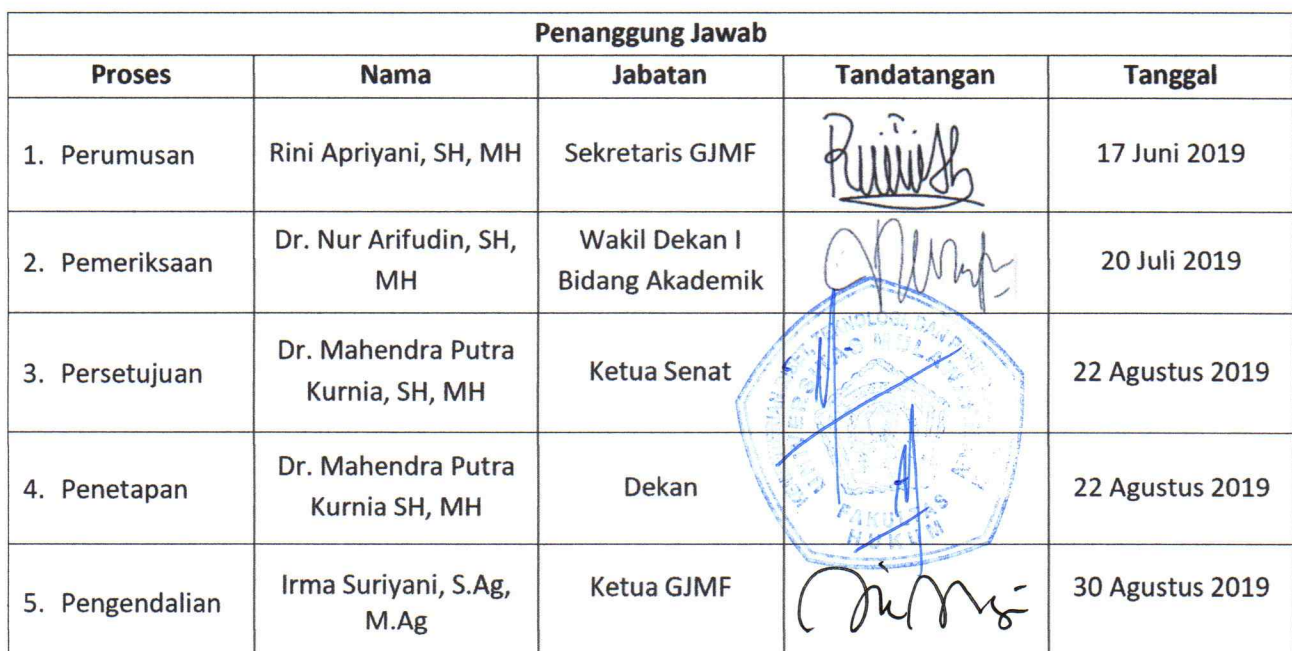 Penanggung Jawab
Proses Nama Jabatan Tandatangan Tanggal
1. Perumusan Rini Apriyani, SH, MH Sekretaris GJMF 17 Juni 2019
2. Pemeriksaan Dr. Nur Arifudin, SH, MH Wakil Dekan I Bidang Akademik 20 Juli 2019
3. Persetujuan Dr. Mahendra Putra Kurnia, SH, MH Ketua Senat 22 Agustus 2019
4. Penetapan Dr. Mahendra Putra Kurnia SH, MH Dekan 22 Agustus 2019
5. Pengendalian Irma Suriyani, S.Ag, M.Ag Ketua GJMF 30 Agustus 2019
FAKULTAS
HUKUM